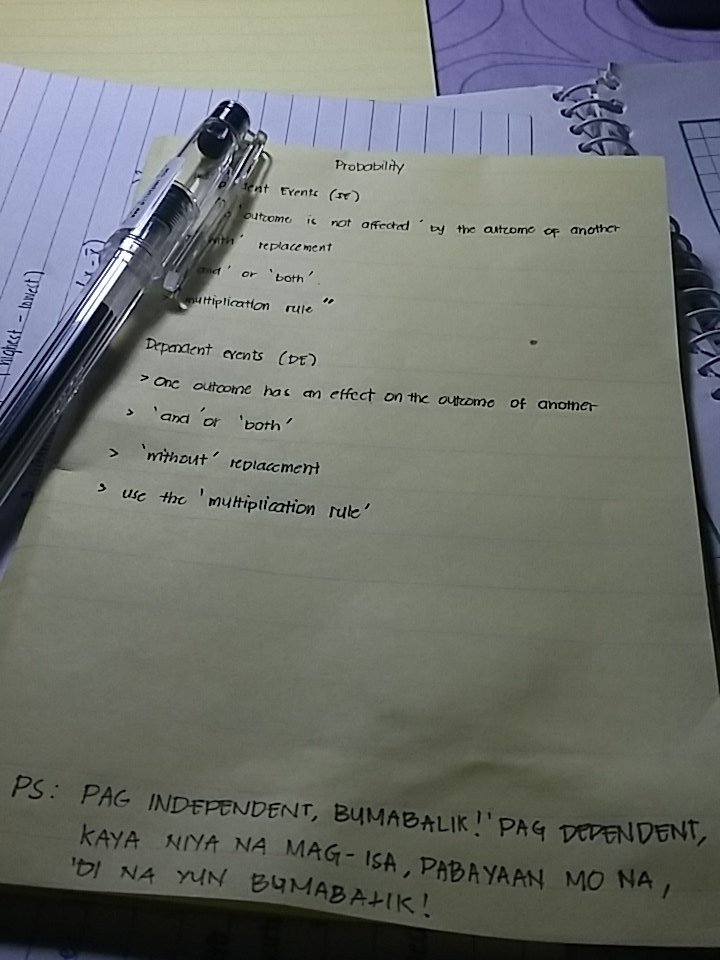 Probability
dent Events (IE)
'outcome is not affected' by the outcome of another
with' replacement
and' or 'both'.
multiplication rule "
Dependent events (DE)
> One outcome has an effect on the outcome of another
> 'and' or 'both'
> 'without' replacement
> use the 'multiplication rule'
PS: PAG INDEPENDENT, BUMABALIK!' PAG DEPENDENT,
KAYA NIYA NA MAG-ISA, PABAYAAN MO NA,
'DI NA YUN BUMABALIK!
(highest - lowest)